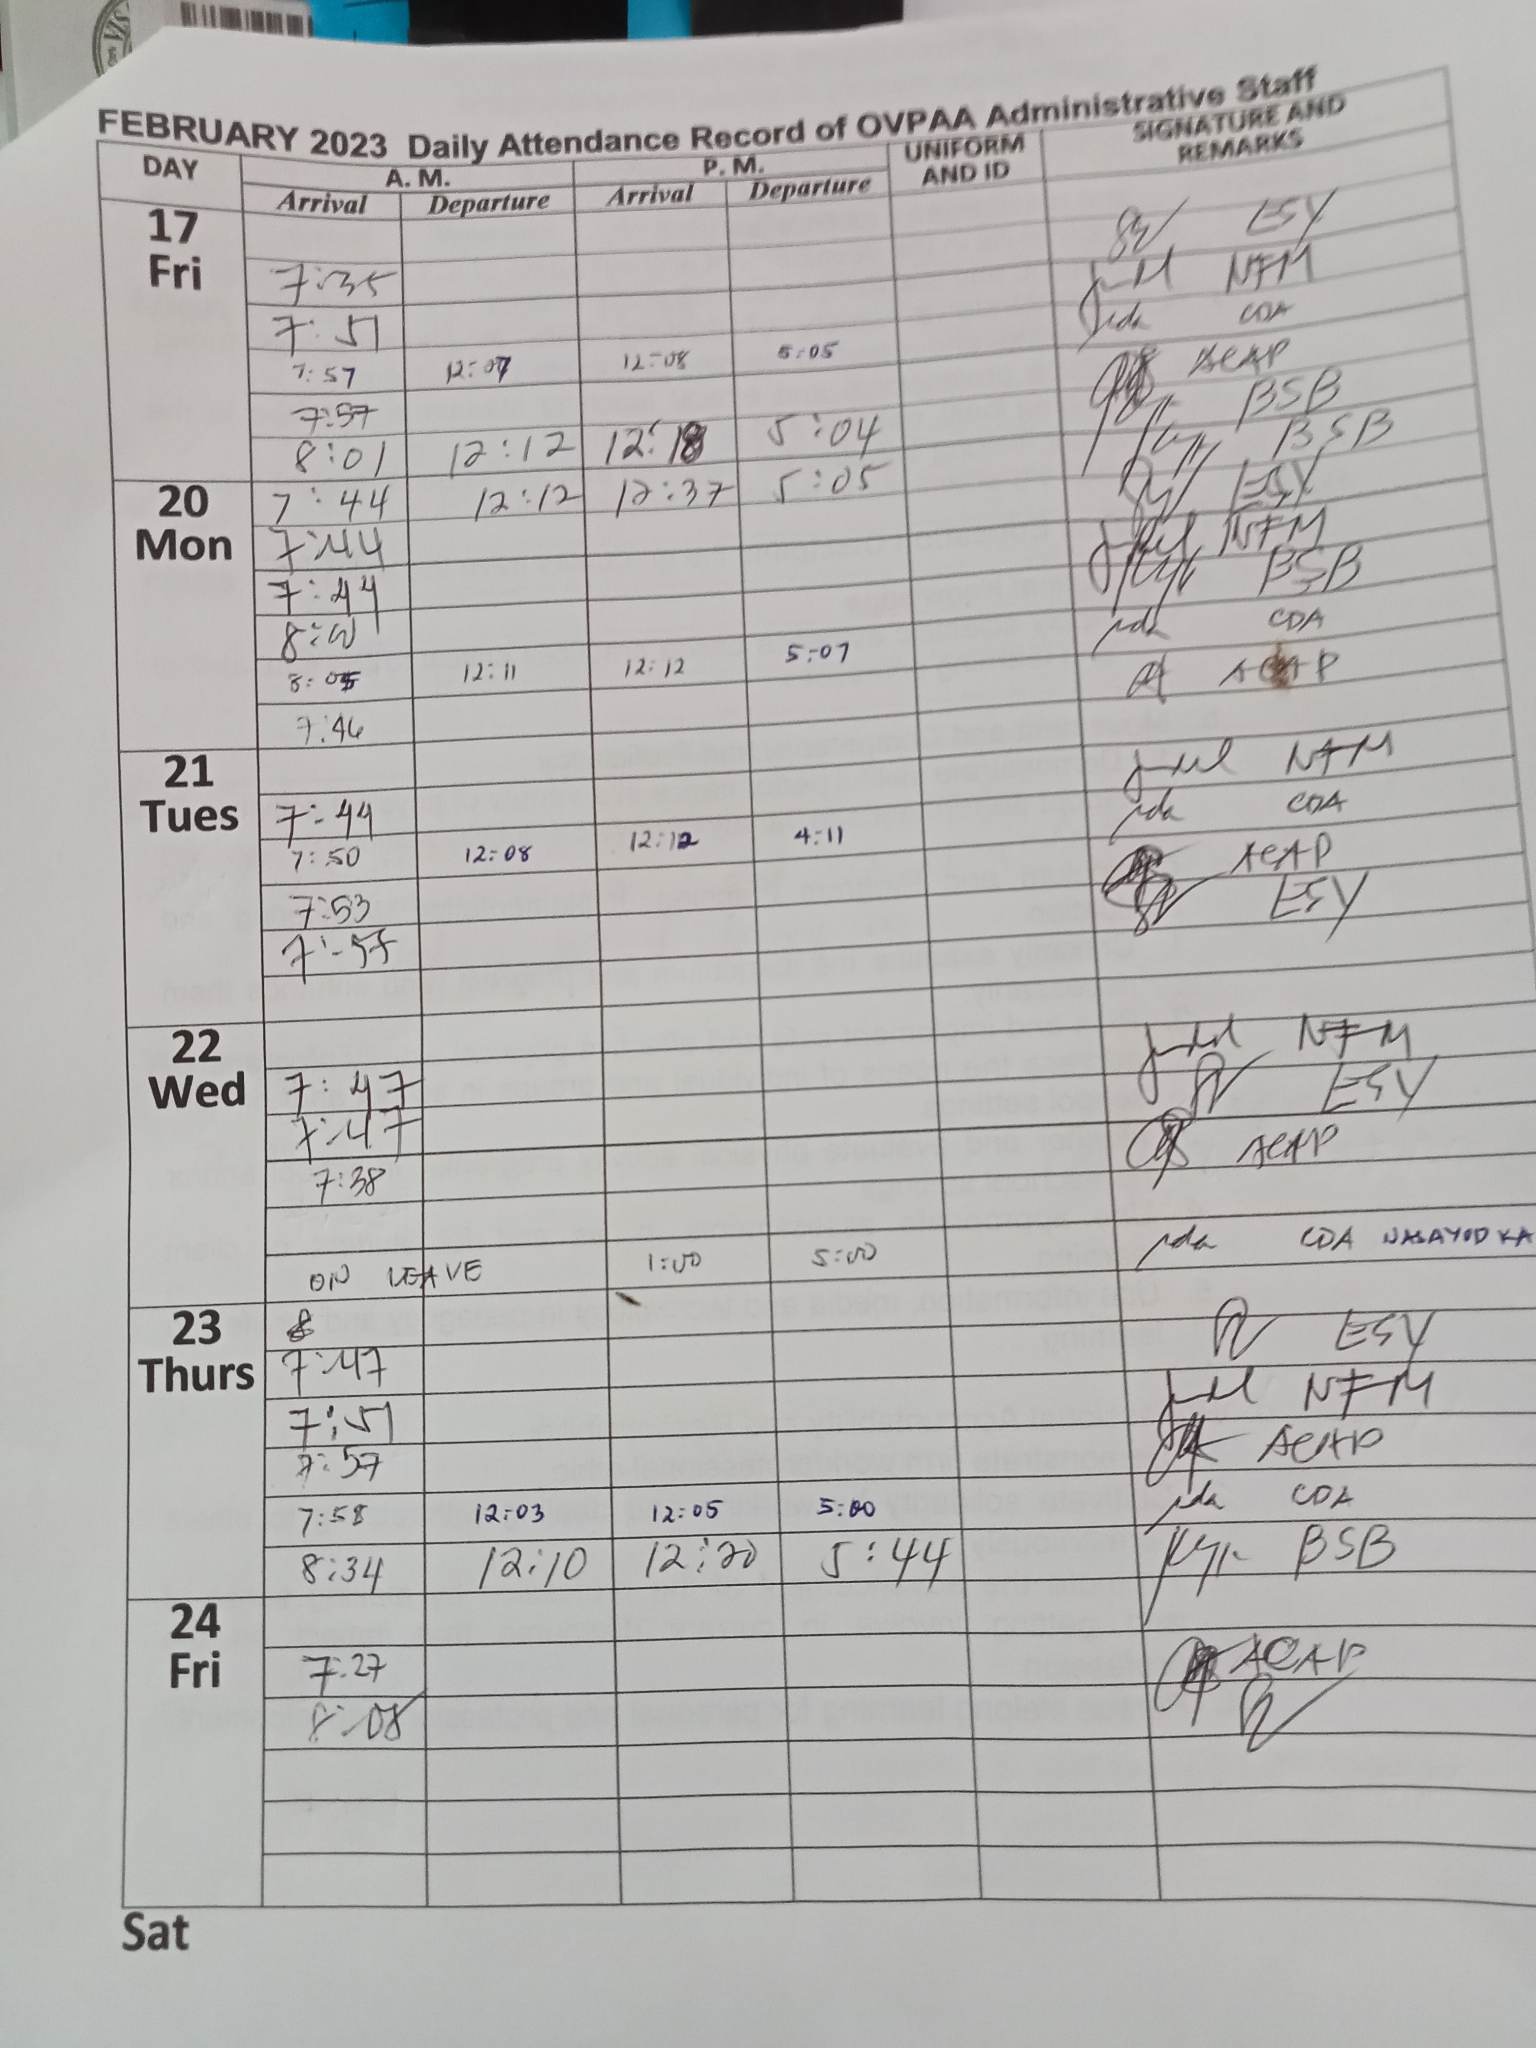 FEBRUARY 2023 Daily Attendance Record of OVPAA Administrative Staff
DAY A. M. P. M. UNIFORM AND ID SIGNATURE AND REMARKS
Arrival Departure Arrival Departure
17 Fri
7:35 ESY
7:51 NFM
7:57 12:07 12:08 5:05 CDA
7:57 ACAP
8:01 12:12 12:18 5:04 BSB
20 Mon
7:44 12:12 12:37 5:05 BSB
7:44 ESY
7:44 NFM
BSB
8:05 12:11 12:12 5:07 CDA
7:46 ACAP
21 Tues
7:44 NFM
7:50 12:08 12:12 4:11 CDA
7:53 ACAP
7:57 ESY
22 Wed
7:47 NFM
7:47 ESY
7:38 ACAP
ON LEAVE 1:00 5:00 CDA
23 Thurs
8
7:47 ESY
7:51 NFM
7:57 ACAP
7:58 12:03 12:05 5:00 CDA
8:34 12:10 12:20 5:44 BSB
24 Fri
7:27 ACAP
8:08
Sat